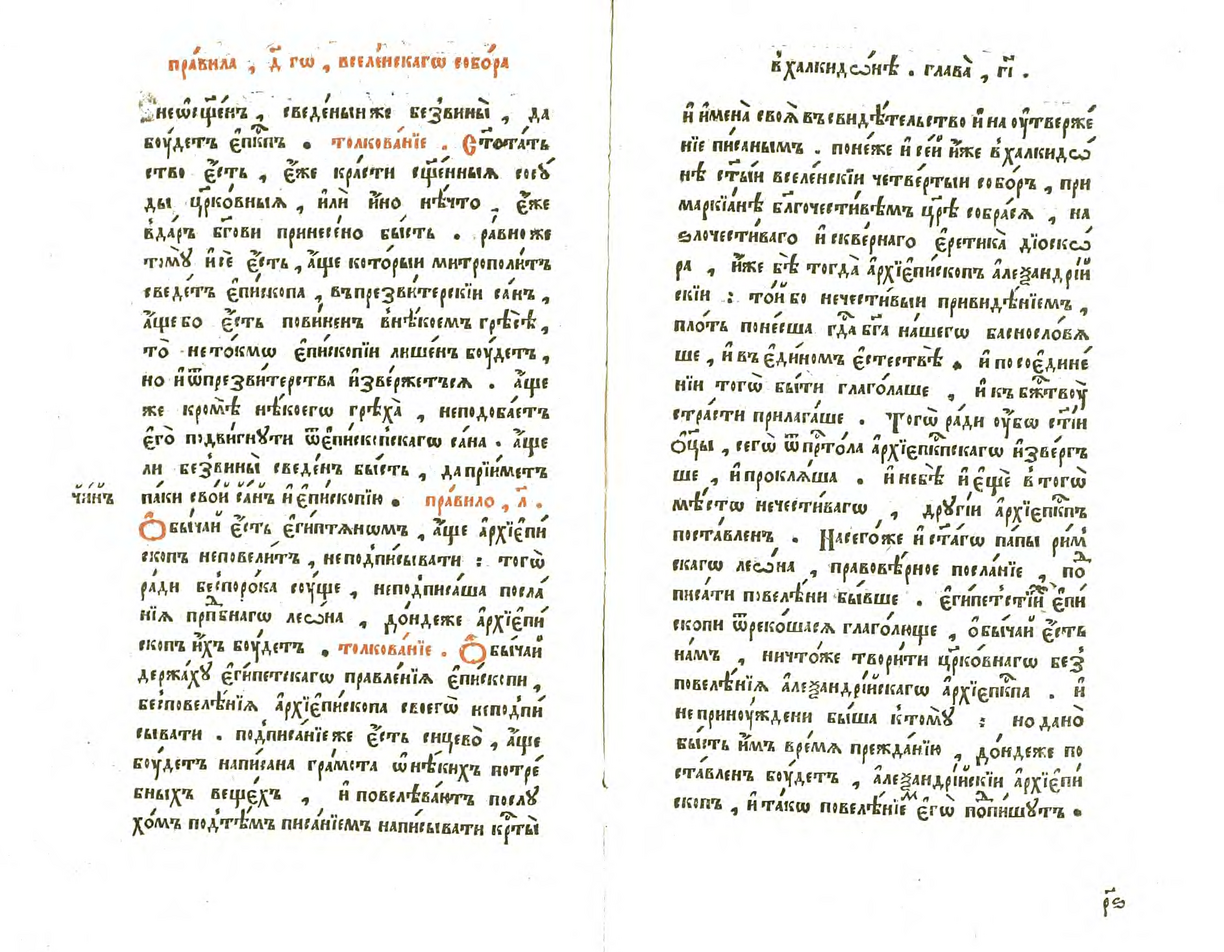 пра́вила , д҃ гѡ , вселе́нскагѡ собо́ра
неѡсщ҃е́нъ , сведе́ныи же без̾вины̀ , да
бꙋ́детъ є҆пк҃пъ . толкова́нїе . Ст҃ота́ть
ство є҆́сть , є҆́же кра́сти сщ҃е́нныѧ сосꙋ́
ды цр҃ко́вныѧ , и҆лѝ и҆́но нѣ́что , є҆́же
в̾да́ръ бг҃ови принесе́но бы́сть . ра́вно же
томꙋ̀ и҆сѐ є҆́сть , а҆́ще кото́рыи митрополи́тъ
сведе́тъ є҆пи́скопа , въпрезви́терскїи са́нъ ,
а҆́ще бо є҆́сть пови́ненъ в̾нѣ́коемъ грѣ́сѣ ,
то̀ нето́кмѡ є҆пи́скопїи лише́нъ бꙋ́детъ ,
но и҆ѿпрезви́терства и҆зве́ржетъсѧ . а҆́ще
же кромѣ̀ нѣ́коегѡ грѣха̀ , неподоба́етъ
є҆го̀ подви́гнꙋти ѿє҆пи́скопскагѡ са́на . а҆́ще
ли без̾вины̀ сведе́нъ бы́сть , да прїи́метъ
чи́нъ
па́ки сво́й са́нъ и҆ є҆пи́скопїю . пра́вило , л҃ .
Ѻ҆бы́чай є҆́сть є҆ги́птѧнѡмъ , а҆́ще а҆рхїє҆пи́
скопъ неповели́тъ , неподпи́сывати : тогѡ̀
ра́ди беспоро́ка сꙋ́ще , неподписа́ша посла́
нїѧ прпⷣбнагѡ леѡ́на , до́ндеже а҆рхїє҆пи́
скопъ и҆́хъ бꙋ́детъ . толкова́нїе . Ѻ҆бы́чаи
держа́хꙋ є҆ги́петскагѡ правле́нїѧ є҆пи́скопи ,
бесповелѣ́нїѧ а҆рхїє҆пи́скопа своегѡ̀ неподпи́
сывати . подписа́нїе же є҆́сть си́цево , а҆́ще
бꙋ́детъ напи́сана гра́мота ѡ҆нѣ́кихъ потре́
бныхъ веще́хъ , и҆ повелѣва́ютъ послꙋ́
хо́мъ под̾тѣ́мъ писа́нїемъ напи́сывати крⷭ҇ты̀
в̾халкидѡ́нѣ . глава̀ , гі҃ .
и҆ и҆мена̀ своѧ̀ въ свидѣ́тельство и҆ на оу҆твержє́
нїе пи́саным . поне́же и҆ се́й и҆́же в̾халкидѡ́
нѣ ст҃ы́и вселе́нскїи четве́ртыи собо́ръ , при
маркїа́нѣ бл҃гочести́вѣмъ цр҃ѣ собра́сѧ , на
ѕлочести́ваго и҆ скве́рнаго є҆ретика̀ дїоскѡ́
ра , и҆́же бѣ̀ тогда̀ а҆рхїє҆пи́скопъ а҆леѯандрі́й
скїи : то́й бо нечести́выи привидѣ́нїемъ ,
пло́ть поне́сша гдⷭ҇а бг҃а на́шегѡ баснослѡ́вѧ
ше , и҆ въ є҆ди́номъ є҆стествѣ̀ . и҆ по соє҆дине́
нїи тогѡ̀ бы́ти глаго́лаше , и҆ къ бж҃твꙋ̀
стра́сти прилага́ше . Тогѡ̀ ра́ди оу҆́бѡ ст҃і́и
ѻ҆ц҃ы̀ , сегѡ̀ ѿпрⷭ҇то́ла а҆рхїє҆пк҃пскагѡ и҆зве́ргъ
ше , и҆ проклѧ́ша . и҆ небѣ̀ и҆ є҆щѐ в̾ тогѡ̀
мѣ́стѡ нечести́вагѡ , дрꙋгі́и а҆рхїє҆пк҃пъ
поста́вленъ . На сего́же и҆ ст҃а́гѡ па́пы ри́м
скагѡ леѡ́на , правовѣ́рное посла́нїе , поⷣ
писа́ти повелѣ́ни бы́вше . є҆ги́петстїи є҆пи́
скопи ѿреко́шасѧ глаго́люще , ѻ҆бы́чаи є҆́сть
на́мъ , ничто́же твори́ти цр҃ко́внагѡ без̾
повелѣ́нїѧ а҆леѯандрі́йскагѡ а҆рхїє҆пк҃па . и҆
не принꙋ́ждени бы́ша к̾томꙋ̀ : но дано̀
бы́сть и҆́мъ вре́мѧ прежда́нїю , до́ндеже по
ста́вленъ бꙋ́детъ , а҆леѯандрі́йскїи а҆рхїє҆пи́
скопъ , и҆ та́кѡ повелѣ́нїеⷨ є҆гѡ̀ поⷣпи́шꙋтъ .
рѕ҃